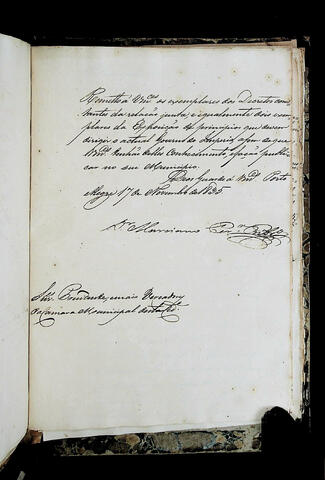 Remetto a Vm.ces os exemplares dos Decretos cons
tantes da relação junta, e igualmente dois exem
plares da Exposição de principios que devem
dirigir o actual Governo do Imperio, afim de que
Vm.ces tenhão delles conhecimento, e fação publi
car no seu Municipio.
Deos Guarde a Vm.ces Porto
Alegre 17 de Novembro de 1835
Dr. Marciano Per.a Ribr.o
Snr. Presidente, e mais Vereadores
da Camara Municipal desta